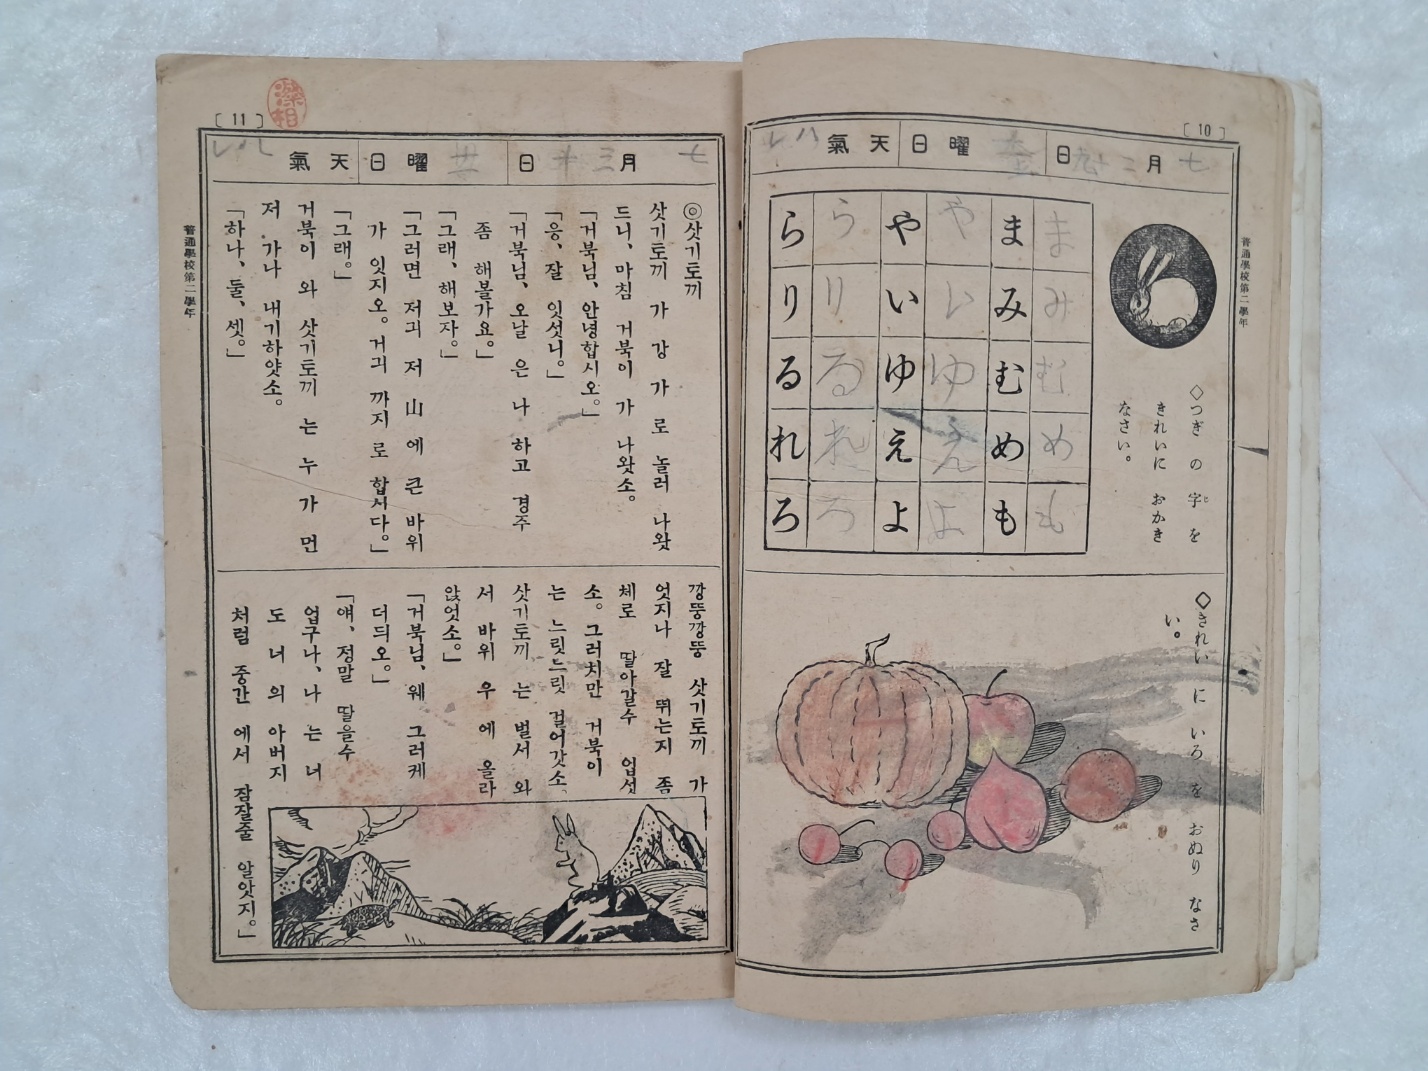 [10]
普通學校第二學年
七月二十九日 曜日 天氣 ハレ
◇つぎ の 字(じ) を
きれいに おかき
なさい。
まみむめも
まみむめも
やいゆえよ
やいゆえよ
らりるれろ
らりるれろ
◇きれい に いろ を おぬり なさ
い。
[11]
七月三十日 曜日 天氣 ハレ
◎삿기토끼
삿기토끼 가 강 가 로 놀러 나왓
드니, 마침 거북이 가 나왓소。
「거북님, 안녕합시오。」
「응, 잘 잇섯니。」
「거북님, 오날 은 나 하고 경주
좀 해볼가요。」
「그래, 해보자。」
「그러면 저긔 저 山 에 큰 바위
가 잇지오。거긔 까지 로 합시다。」
「그래。」
거북이 와 삿기토끼 는 누 가 먼
저 가나 내기하얏소。
「하나, 둘, 셋。」
깡뚱깡뚱 삿기토끼 가
엇지나 잘 뛰는지 좀
체로 딸아갈수 업섯
소。그러치만 거북이
는 느릿느릿 걸어갓소。
삿기토끼 는 벌서 와
서 바위 우 에 올라
안엇소。」
「거북님, 웨 그러케
더듸오。」
「얘, 정말 딸을수
업구나、나 는 너
도 너 의 아버지
처럼 중간 에서 잠잘줄 알앗지。」
普通學校第二學年